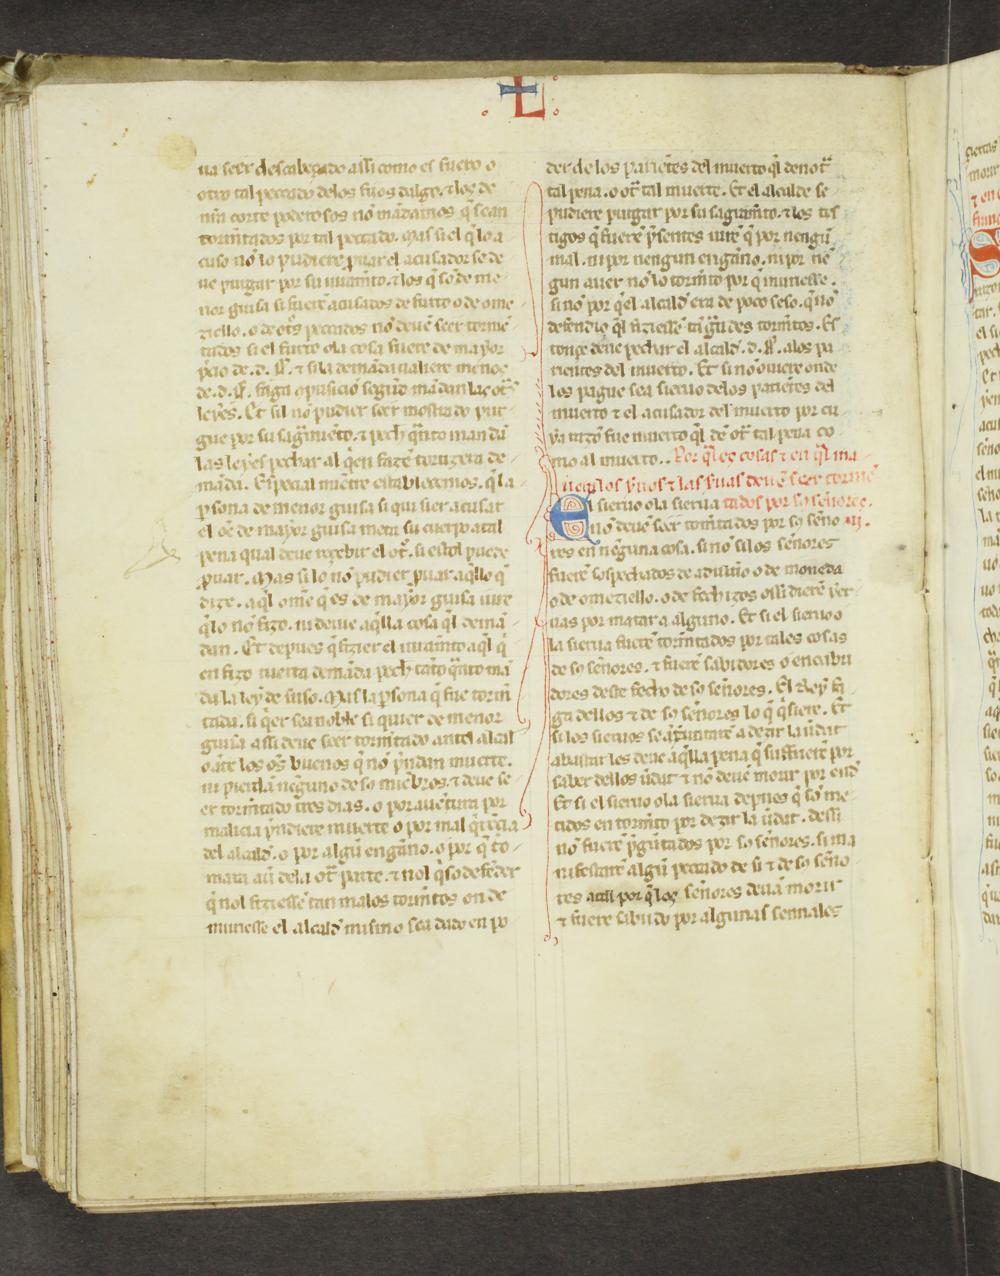 L
ua seer descabeçado assi como es fuero o
otro tal peccado delos fijos dalgo. τ los de
nr̃a corte poderosos nõ mãdamos q̃ sean
torm̃tados por tal peccado. Mas si el q̃ lo a
cuso nõ lo pudiere ꝓuar el acusador se de
ue purgar por su iuram̃to. τ los q̃ sõ de me
nor guisa si fuerẽ acusados de furto o de ome
ziello. o de ot̃s peccados nõ deuẽ seer tormẽ
tados si el furto o la cosa fuere de mayor
p̃cio de .d. ss̃. τ si la demãda ualiere menos
de .d. ss̃. faga opusiciõ segũd mãdan las ot̃s
leyes. Et sil nõ pudier seer mostrado pur
gue por su sag̃miẽto. τ pech q̃nto mandã
las leyes pechar al q̃en fazẽ tortizera de
mãda. Especial miẽtre establecemos. q̃ la
ꝑsona de menor guisa si qui sier acusar
el oẽ de mayor guisa meta su cuerpo a tal
pena qual deue reçebir el ot̃. si esto l puede
ꝓuar. Mas si lo nõ pudier ꝓuar aq̃llo q̃
dize. aq̃l ome q̃ es de mayor guisa iure
q̃ lo nõ fizo. ni deuue aq̃lla cosa q̃l demã
dan. Et depues q̃ fizier el iuram̃to aq̃l q̃
en fizo tuerta demãda pech tãto q̃nto mã
da la ley de suso. Mas la ꝑsona q̃ fue torm̃
tada. si q̃er sea noble si quier de menor
guisa assi deue seer torm̃tado antel alcalł
o ãte los oẽs buenos q̃ nõ p̃ndan muerte.
ni pierdã nẽguno de so miẽbros. τ deue se
er torm̃tado tres dias. o por auẽtura por
malicia p̃ndiere muerte o por mal q̃rẽcia
del alcald̃. o por algũ engãno. o por q̃ to
mara auẽ dela ot̃ parte. τ nol q̃so defẽder
q̃ nol fiziesse tan malos torm̃tos on de
muriesse el alcald̃ mismo sea dado en po
der de los pariẽtes del muerto q̃l den ot̃
tal pena. o ot̃ tal muerte. Et el alcalde se
pudiere purgar por su sagram̃to. τ los tes
tigos q̃ fuerẽ p̃sentes iurẽ q̃ por nengũ
mal. ni por nengun engãno. ni por nẽ
gun auer nõ lo torm̃to por q̃ muriesse.
si nõ por q̃ el alcald̃ era de poco seso. q̃ nõ
defendio q̃l fiziessẽ tã g̃ndes torm̃tos. Es
tonçe deue pechar el alcald̃ .d. ss̃. a los pa
rientes del muerto. Et si nõ ouiere onde
los pague sea sieruo delos pariẽtes del
muerto τ el acusador del muerto por cu
ya razõ fue muerto q̃l dẽ ot̃ tal pena co
mo al muerto.. Por q̃les cosas τ en q̃l ma
nera los s̃uos τ las s̃uas deuẽ seer tormẽ
El sieruo o la sierua tados por so señores.
nõ deuẽ seer torm̃tados por so seño .iiij.
res en nẽguna cosa. si nõ si los señores
fuerẽ sospechados de adulterio o de moneda
o de omeziello. o de fechizos o si dierẽ yer
uas por matar a alguno. Et si el sieruo o
la sierua fuerẽ torm̃tados por tales cosas
de so señores. τ fuerẽ sabidores o encubri
dores deste fecho de so señores. El Rey fa
ga dellos τ de so señores lo q̃ q̃siere. Et
si los sieruos se a p̃suntarẽ a dezir la ũdat
abastar les deue aq̃lla pena q̃ suffrierẽ por
saber dellos ũdat τ nõ deuẽ morir por end̃
Et si el sieruo o la sierua depues q̃ sõ me
tidos en torm̃to por dezir la ũdat. dessi
nõ fuerẽ p̃gũtados por so señores. si ma
nifestarẽ algũ peccado de si τ de so seño
res atal por q̃ los señores deuã morir
τ fuere sabudo por algunas sennales